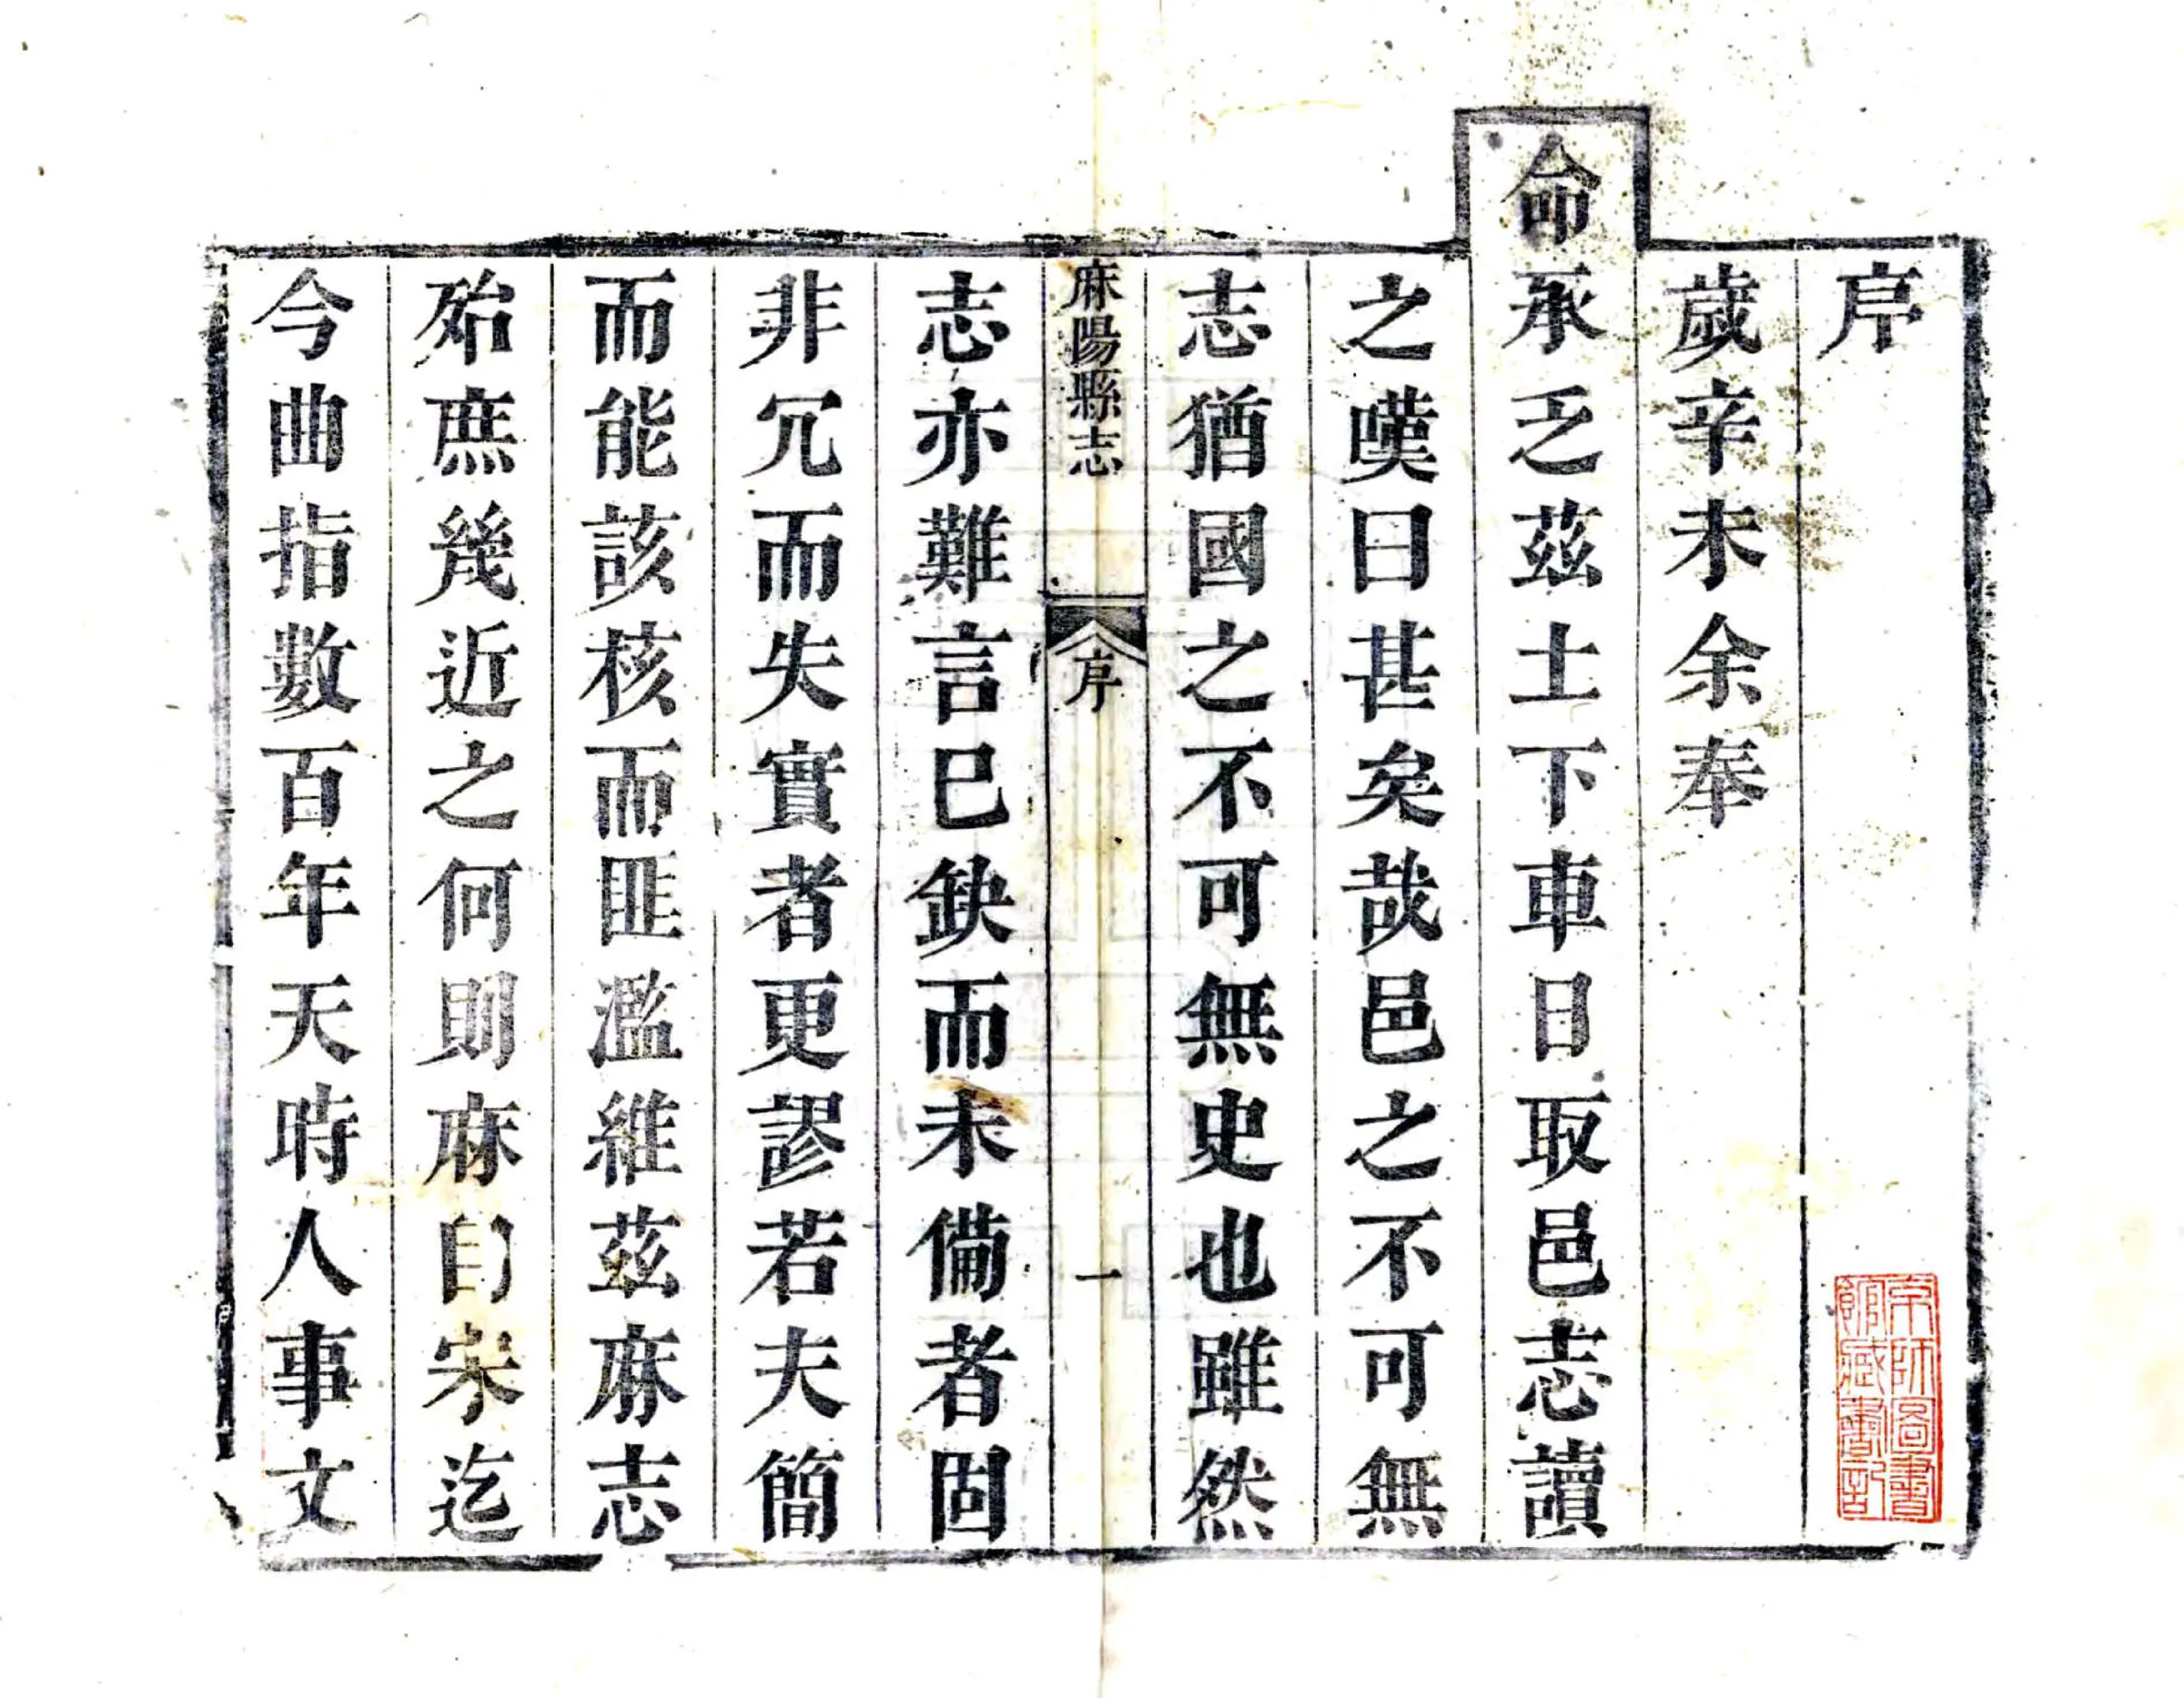 序
歲辛未余奉
命承乏茲土下車日取邑志讀
之嘆曰甚矣哉邑之不可無
志猶國之不可無史也雖然
麻陽縣志
序
一
志亦難言巳缺而未備者固
非冗而失實者更謬若夫簡
而能該核而匪濫維茲麻志
殆庶幾近之何則麻自宋迄
今曲指數百年天時人事文
京師圖書
館藏書記